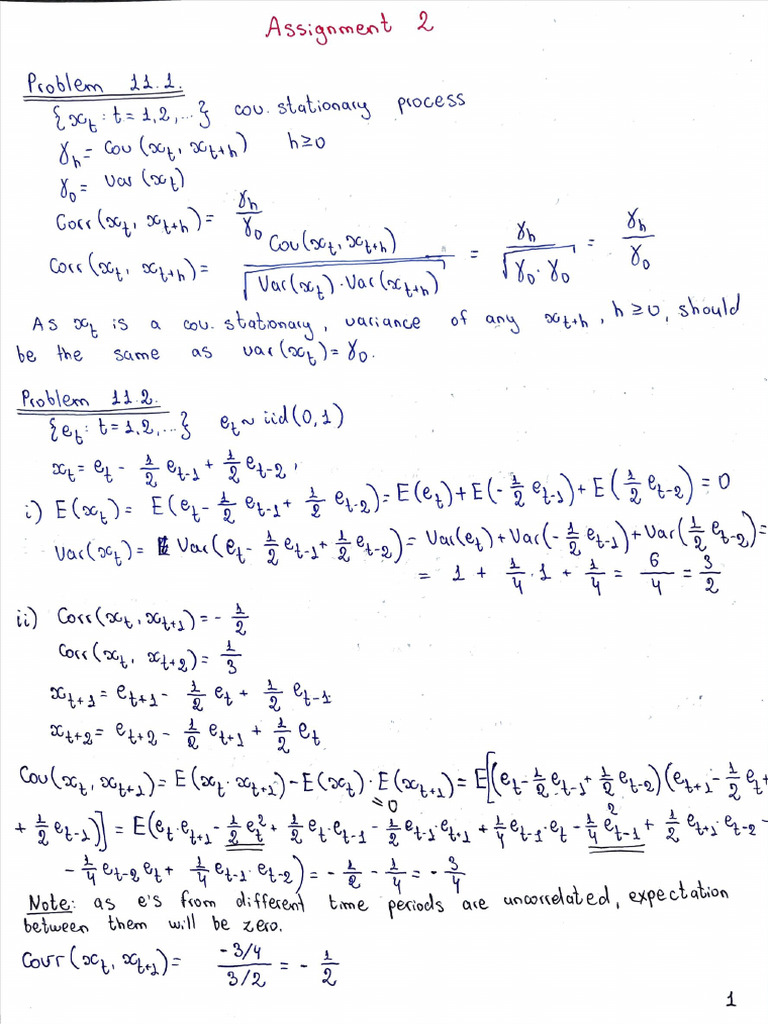 Assignment 2
Problem 11.1.
{x_t : t = 1,2,...} cov. stationary process
γ_h = Cov(x_t, x_{t+h})   h≥0
γ_0 = Var(x_t)
Corr(x_t, x_{t+h}) = γ_h/γ_0
Corr(x_t, x_{t+h}) = Cov(x_t, x_{t+h}) / √(Var(x_t)·Var(x_{t+h})) = γ_h/√(γ_0·γ_0) = γ_h/γ_0
As x_t is a cov. stationary, variance of any x_{t+h}, h≥0, should
be the same as var(x_t) = γ_0.
Problem 11.2.
{e_t : t = 1,2,...}   e_t ~ iid(0,1)
x_t = e_t - 1/2 e_{t-1} + 1/2 e_{t-2},
i) E(x_t) = E(e_t - 1/2 e_{t-1} + 1/2 e_{t-2}) = E(e_t) + E(-1/2 e_{t-1}) + E(1/2 e_{t-2}) = 0
Var(x_t) = Var(e_t - 1/2 e_{t-1} + 1/2 e_{t-2}) = Var(e_t) + Var(-1/2 e_{t-1}) + Var(1/2 e_{t-2}) =
= 1 + 1/4·1 + 1/4 = 6/4 = 3/2
ii) Corr(x_t, x_{t+1}) = -1/2
Corr(x_t, x_{t+2}) = 1/3
x_{t+1} = e_{t+1} - 1/2 e_t + 1/2 e_{t-1}
x_{t+2} = e_{t+2} - 1/2 e_{t+1} + 1/2 e_t
Cov(x_t, x_{t+1}) = E(x_t·x_{t+1}) - E(x_t)·E(x_{t+1}) = E[(e_t - 1/2 e_{t-1} + 1/2 e_{t-2})(e_{t+1} - 1/2 e_t +
= 0
+ 1/2 e_{t-1})] = E(e_t·e_{t+1} - 1/2 e_t² + 1/2 e_t·e_{t-1} - 1/2 e_{t-1}·e_{t+1} + 1/4 e_{t-1}·e_t - 1/4 e²_{t-1} + 1/2 e_{t+1}·e_{t-2} -
- 1/4 e_{t-2} e_t + 1/4 e_{t-1}·e_{t-2}) = -1/2 - 1/4 = -3/4
Note: as e's from different time periods are uncorrelated, expectation
between them will be zero.
Courr(x_t, x_{t+1}) = (-3/4)/(3/2) = -1/2
1